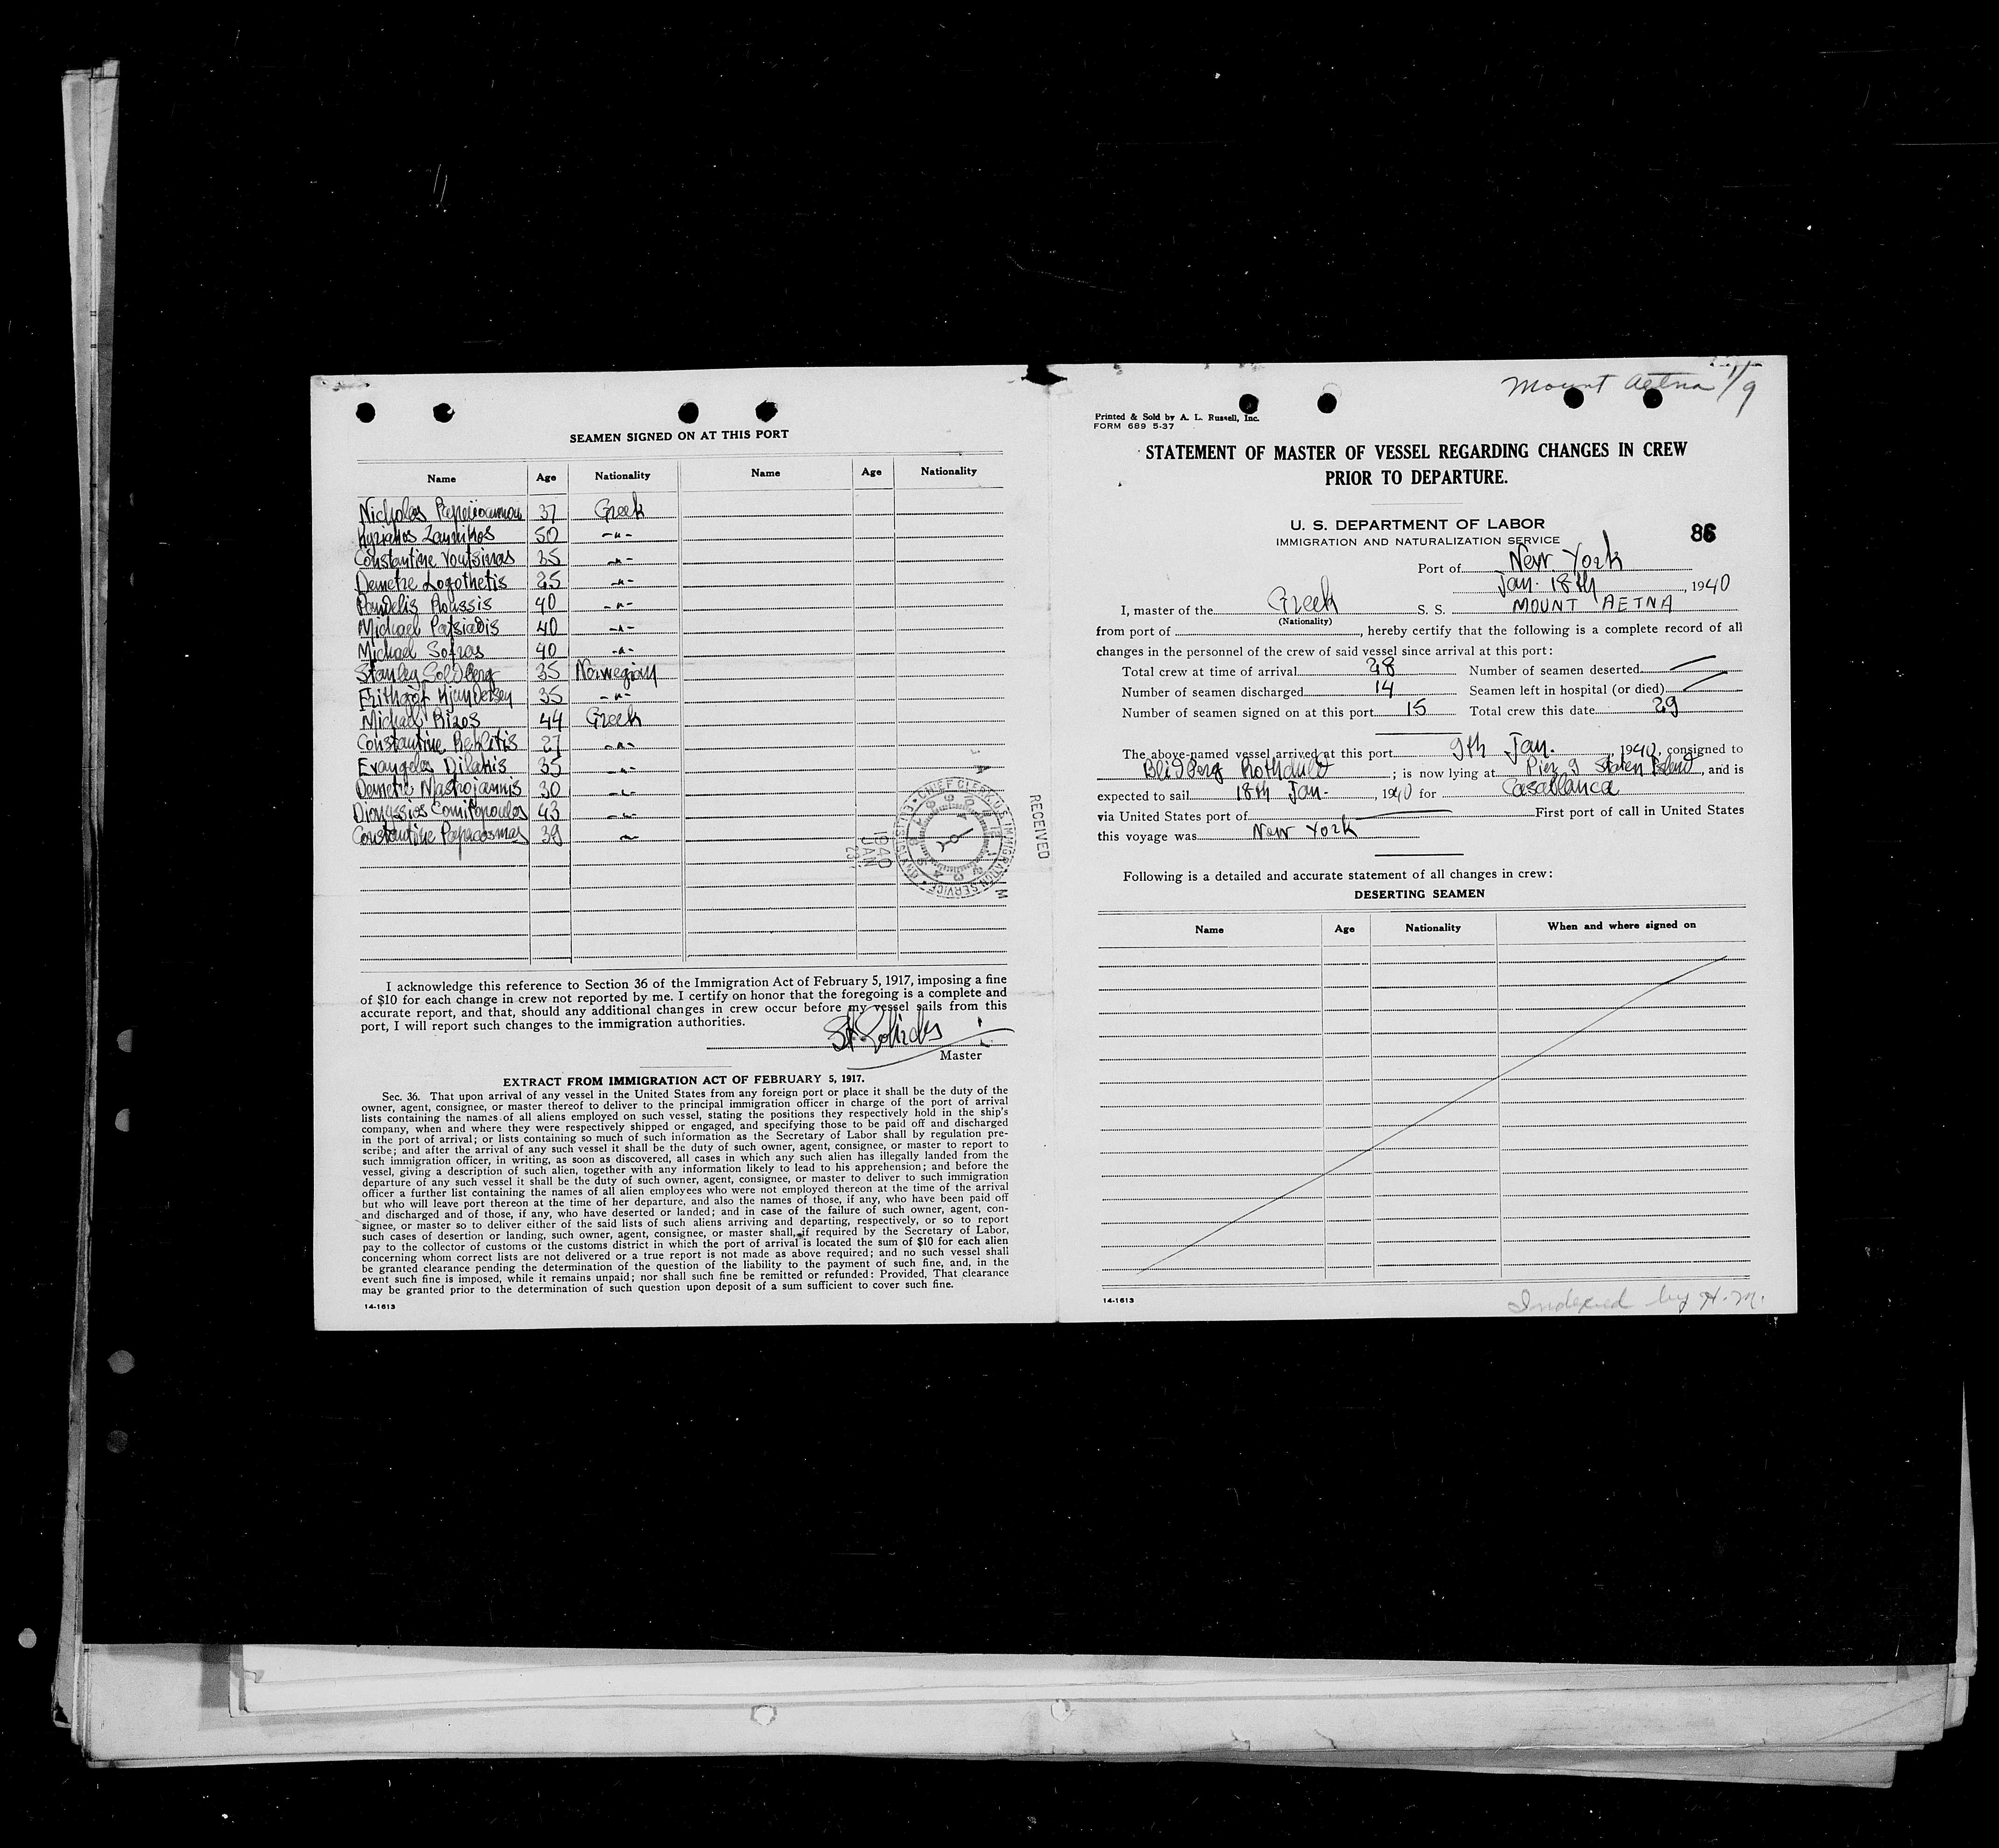 SEAMEN SIGNED ON AT THIS PORT
Name Age Nationality Name Age Nationality
Nicholas 37 Greek
Kyriakos Zannikos 50 -"-
Constantine Voutsinas 35 -"-
Demetre Logothetis 25 -"-
Pandelis Roussis 40 -"-
Michael Patsiadis 40 -"-
Michael Sofras 40 -"-
Stanley Soldberg 35 Norwegian
Frithgof 35 -"-
Michael Rizos 44 Greek
Constantine 27 -"-
Evangelos Dilakis 35 -"-
Demetre Mastrojannis 30 -"-
Dionyssios Comitopoulos 43 -"-
Constantine Papacosmas 39 -"-
RECEIVED
1940
JAN
23
CHIEF CLERK U.S. IMMIGRATION
I acknowledge this reference to Section 36 of the Immigration Act of February 5, 1917, imposing a fine
of $10 for each change in crew not reported by me. I certify on honor that the foregoing is a complete and
accurate report, and that, should any additional changes in crew occur before my vessel sails from this
port, I will report such changes to the immigration authorities.
Master
EXTRACT FROM IMMIGRATION ACT OF FEBRUARY 5, 1917.
Sec. 36. That upon arrival of any vessel in the United States from any foreign port or place it shall be the duty of the
owner, agent, consignee, or master thereof to deliver to the principal immigration officer in charge of the port of arrival
lists containing the names of all aliens employed on such vessel, stating the positions they respectively hold in the ship's
company, when and where they were respectively shipped or engaged, and specifying those to be paid off and discharged
in the port of arrival; or lists containing so much of such information as the Secretary of Labor shall by regulation pre-
scribe; and after the arrival of any such vessel it shall be the duty of such owner, agent, consignee, or master to report to
such immigration officer, in writing, as soon as discovered, all cases in which any such alien has illegally landed from the
vessel, giving a description of such alien, together with any information likely to lead to his apprehension; and before the
departure of any such vessel it shall be the duty of such owner, agent, consignee, or master to deliver to such immigration
officer a further list containing the names of all alien employees who were not employed thereon at the time of the arrival
but who will leave port thereon at the time of her departure, and also the names of those, if any, who have been paid off
and discharged and of those, if any, who have deserted or landed; and in case of the failure of such owner, agent, con-
signee, or master so to deliver either of the said lists of such aliens arriving and departing, respectively, or so to report
such cases of desertion or landing, such owner, agent, consignee, or master shall, if required by the Secretary of Labor,
pay to the collector of customs of the customs district in which the port of arrival is located the sum of $10 for each alien
concerning whom correct lists are not delivered or a true report is not made as above required; and no such vessel shall
be granted clearance pending the determination of the question of the liability to the payment of such fine, and, in the
event such fine is imposed, while it remains unpaid; nor shall such fine be remitted or refunded: Provided, That clearance
may be granted prior to the determination of such question upon deposit of a sum sufficient to cover such fine.
14-1613
Mount Aetna 1/9
Printed & Sold by A. L. Russell, Inc.
FORM 689 5-37
STATEMENT OF MASTER OF VESSEL REGARDING CHANGES IN CREW
PRIOR TO DEPARTURE.
U. S. DEPARTMENT OF LABOR
IMMIGRATION AND NATURALIZATION SERVICE
86
Port of New York
Jan. 18th, 1940
I, master of the Greek S. S. MOUNT AETNA
(Nationality)
from port of , hereby certify that the following is a complete record of all
changes in the personnel of the crew of said vessel since arrival at this port:
Total crew at time of arrival 28 Number of seamen deserted
Number of seamen discharged 14 Seamen left in hospital (or died)
Number of seamen signed on at this port 15 Total crew this date 29
The above-named vessel arrived at this port 9th Jan. , 1940, consigned to
Blidberg Rothchild ; is now lying at Pier 9 Staten Island, and is
expected to sail 18th Jan. , 1940 for Casablanca
via United States port of First port of call in United States
this voyage was New York
Following is a detailed and accurate statement of all changes in crew:
DESERTING SEAMEN
Name Age Nationality When and where signed on
14-1613
Indexed by H.M.